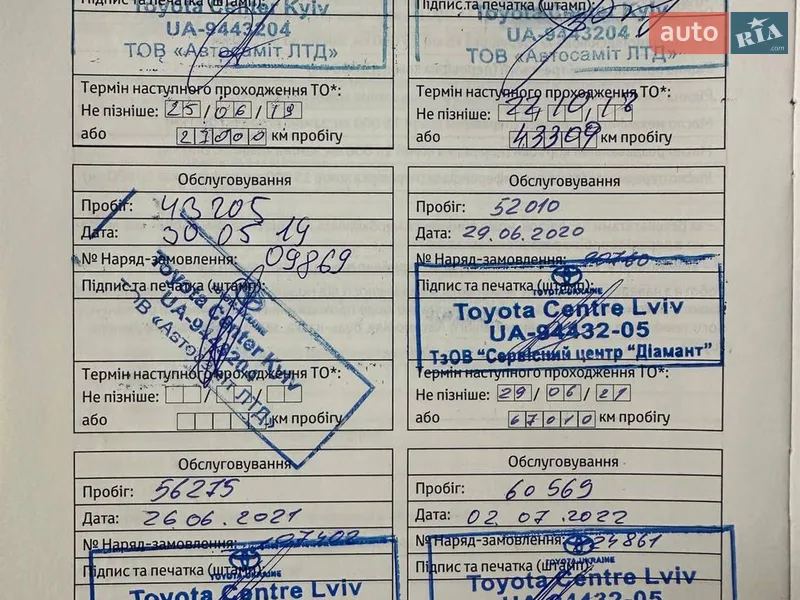 Підпис та печатка (штамп):
Toyota Center Kyiv
UA-9443204
ТОВ «Автосаміт ЛТД»
Термін наступного проходження ТО*:
Не пізніше: 25/06/19
або 27000 км пробігу
Підпис та печатка (штамп):
Toyota Center Kyiv
UA-9443204
ТОВ «Автосаміт ЛТД»
auto RIA.com
Термін наступного проходження ТО*:
Не пізніше:
або 43309 км пробігу
Обслуговування
Пробіг: 43205
Дата: 30 05 19
№ Наряд-замовлення: 09869
Підпис та печатка (штамп):
TOYOTA UKRAINE
Toyota Center Kyiv
UA-9443204
ТОВ «Автосаміт ЛТД»
Термін наступного проходження ТО*:
Не пізніше:
або км пробігу
Обслуговування
Пробіг: 52010
Дата: 29.06.2020
№ Наряд-замовлення:
Підпис та печатка (штамп):
TOYOTA UKRAINE
Toyota Centre Lviv
UA-94432-05
ТзОВ "Сервісний центр "Діамант"
Термін наступного проходження ТО*:
Не пізніше: 29/06/21
або 67010 км пробігу
Обслуговування
Пробіг: 56275
Дата: 26.06.2021
№ Наряд-замовлення:
Підпис та печатка (штамп):
TOYOTA UKRAINE
Toyota Centre Lviv
Обслуговування
Пробіг: 60569
Дата: 02.07.2022
№ Наряд-замовлення:
Підпис та печатка (штамп):
TOYOTA UKRAINE
Toyota Centre Lviv
UA-94432-05